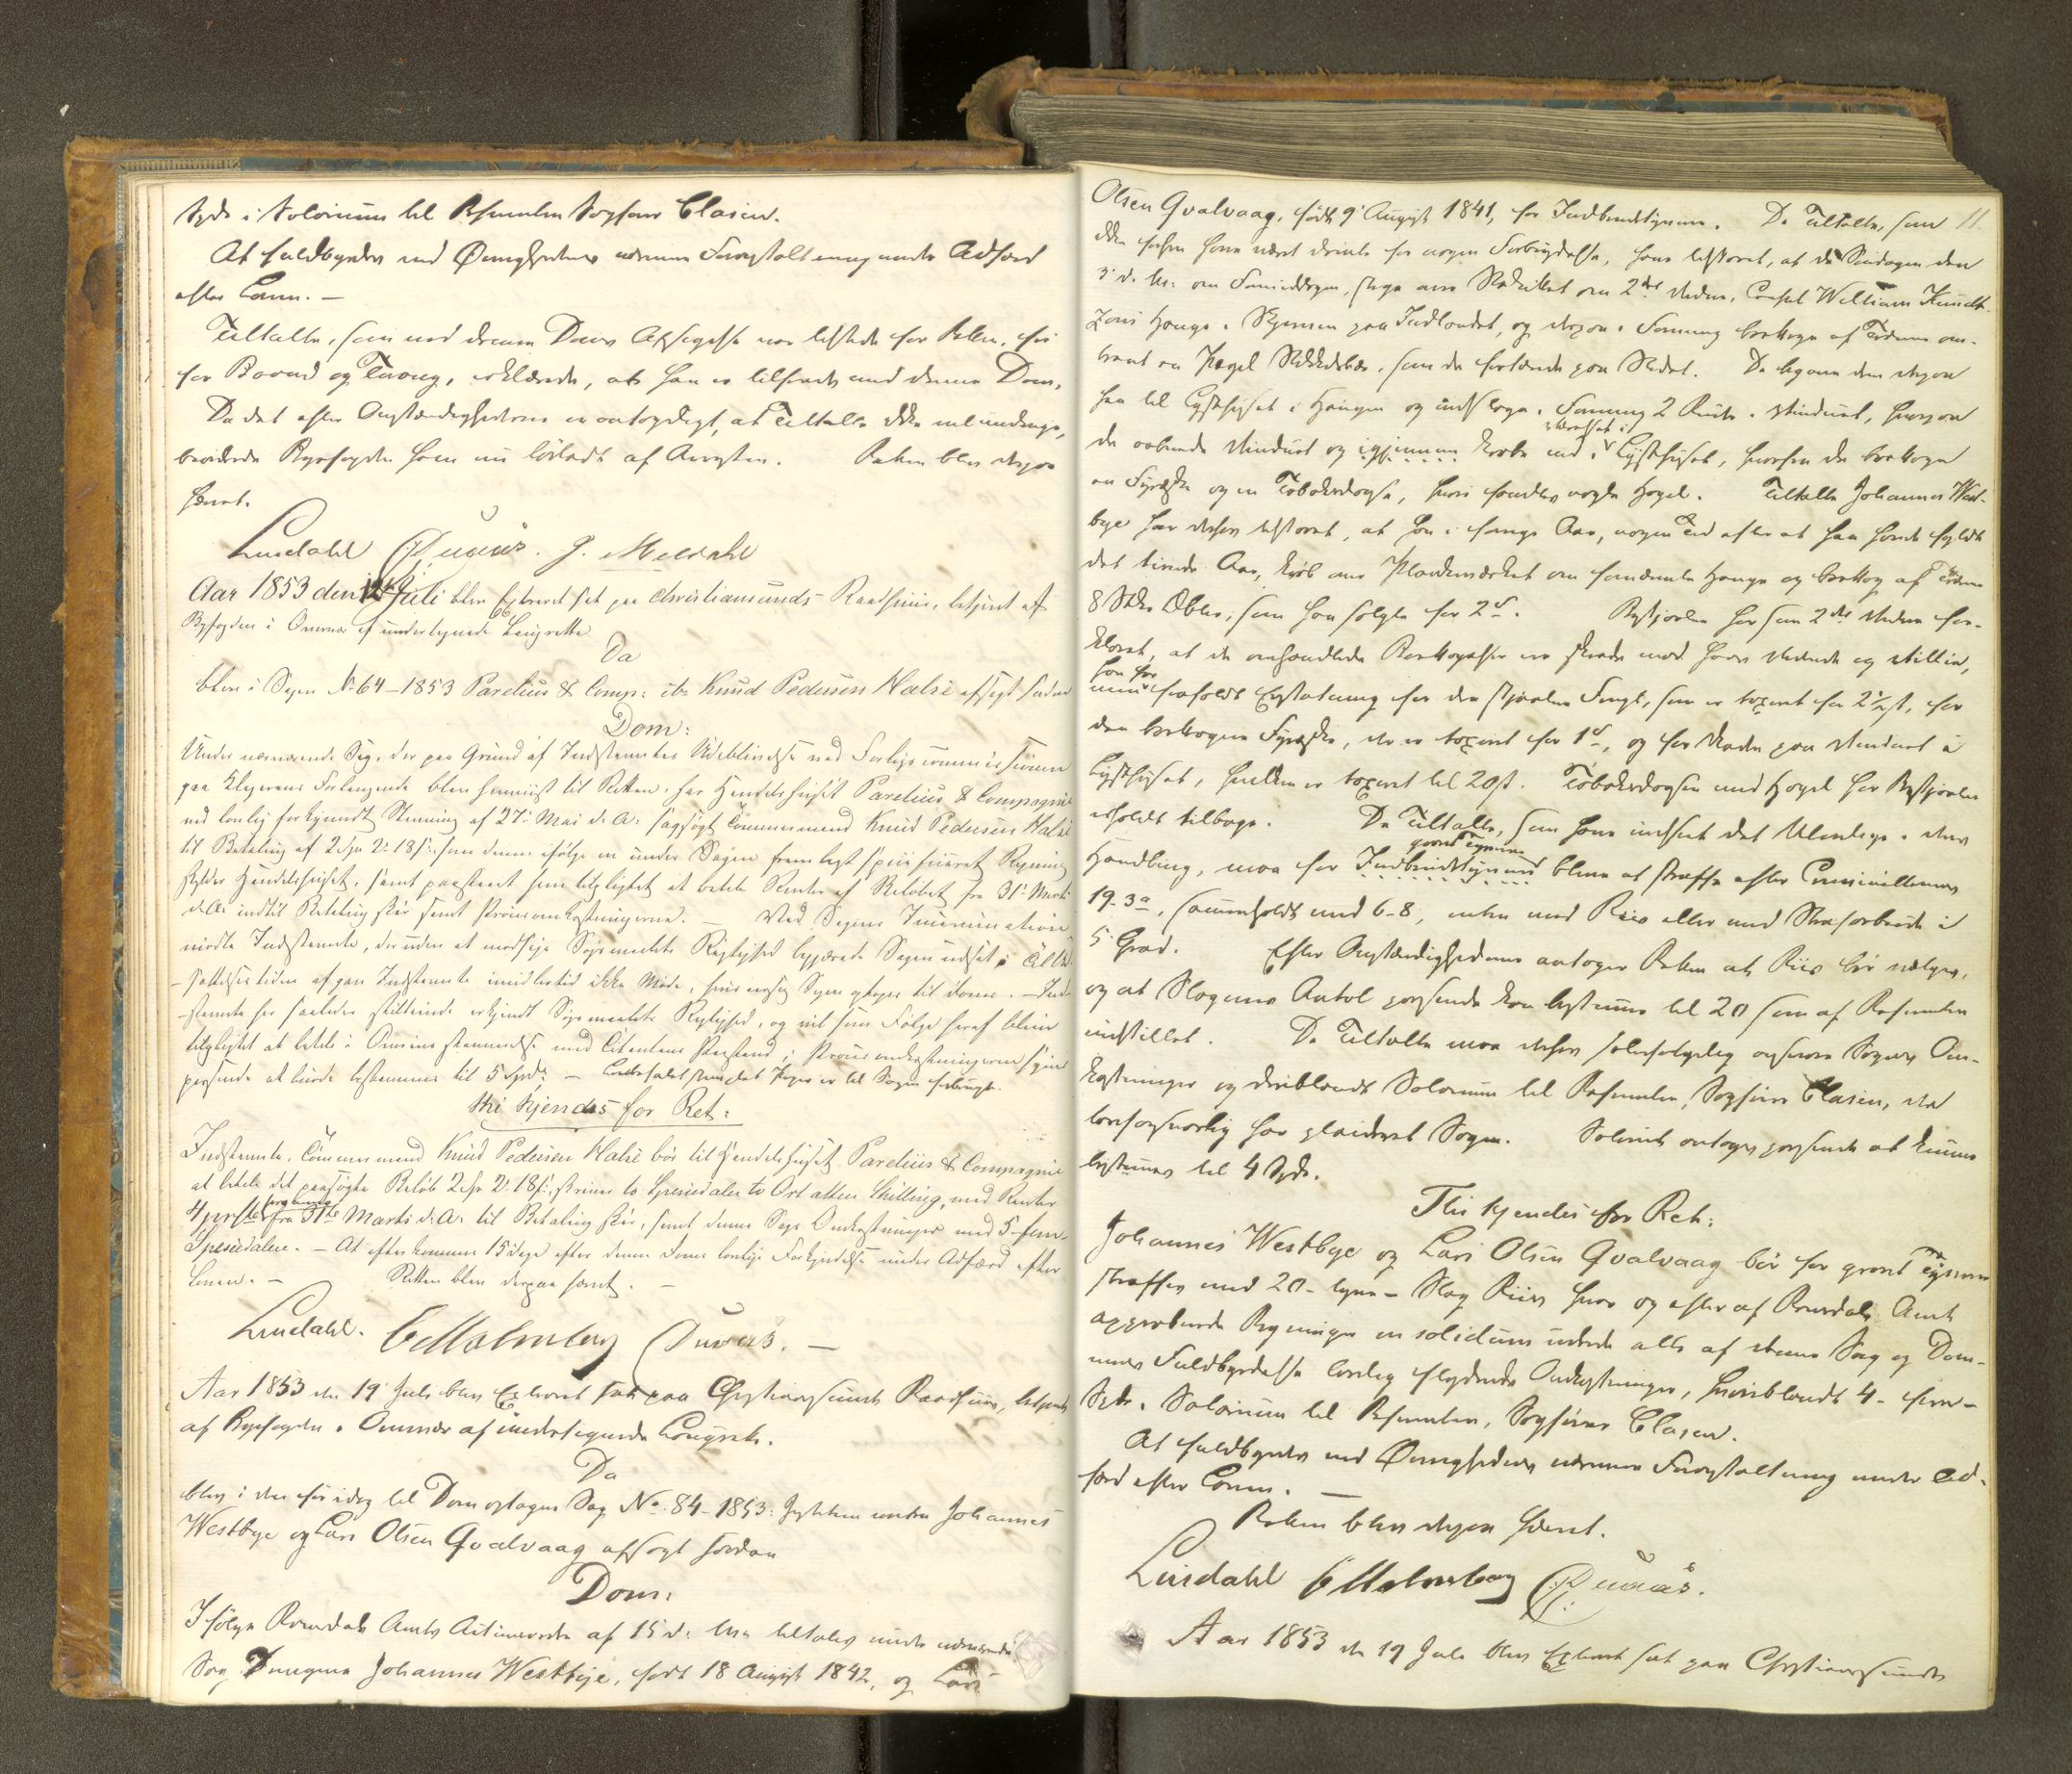 Spd. i Salarium til Defensor Sagfører Clasen.
At fuldbyrdes ved Øvrighedens nærmere Foranstaltning under Adfærd
efter Loven. —
Tiltalte, som ved denne Doms Afsigelse var tilstede for Retten, fri
for Baand og Tvang, erklærede, at han er tilfreds med denne Dom,
Da det efter Omstændighederne er antageligt, at Tiltalte ikke vil undvige,
beordrede Byfogden ham nu løsladt af Arresten. Retten blev derpaa
hævet.
Lindahl Duuaas. J. Meldahl
Aar 1853 den 12 Juli blev Extraret sat paa Christiansunds Raadhuus, betjent af
Byfogden i Overvær af undertegnede Laugrette
Da
blev i Sagen No 64–1853 Parelius & Comp: ctr Knud Pedersen Halse afsagt saadan
Dom:
Under nærværende Sag, der paa Grund af Indstevntes Udeblivelse ved Forligscommissionen
paa Klagerens Forlangende blev henviist til Retten, har Handelshuset Parelius & Compagnie
ved lovlig forkyndt Stevning af 27 Mai d. A. sagsøgt Tømmermand Knud Pedersen Halse
til Betaling af 2 Spd 2 18 s. som denne ifølge en under Sagen fremlagt specificeret Regning
skylder Handelshuset, samt paastaaet ham tilpligtet at betale Renter af Beløbet fra 31 Marts
d. A. indtil Betaling skeer samt Procesomkostningerne. — Ved Sagens Incamination
mødte Indstevnte, der uden at modsige Søgsmaalets Rigtighed begjærede Sagen udsat,
Indstevnte imidlertid ikke møde, hvis Sagen optoges til Doms. — Ind-
stevnte har saaledes stiltiende erkjendt Søgsmaalets Rigtighed, og vil som Følge heraf blive
tilpligtet at betale i Overensstemmelse med Citantens Paastand, Procesomkostningerne
passende at burde bestemmes til 5 Spd. — Papir er til Sagen forbrugt.
Thi kjendes for Ret:
Indstevnte, Tømmermand Knud Pedersen Halse bør til Handelshuset Parelius & Compagnie
at betale det paasøgte Beløb 2 Spd 2 18 s, skriver to Speciedaler to Ort atten Skilling, med Renter
4 prCto fra 31te Marts d. A. til Betaling skeer, samt denne Sags Omkostninger med 5 – fem
Speciedaler. — At efterkomme 15 Dage efter denne Doms lovlige Forkyndelse under Adfærd efter
Loven. — Retten blev derpaa hævet. —
Lindahl. C Malmberg Duuaas. —
Aar 1853 den 19 Juli blev Extraret sat paa Christianssunds Raadhuus, betjent
af Byfogden i Overvær af undertegnede Laugrette.
Da
blev i den før idag til Dom optagne Sag No 84–1853: Justitien contra Johannes
Westbye og Lars Olsen Qvalvaag afsagt saadan
Dom:
Ifølge Romsdals Amts Actionsordre af 15 d. M. tiltales under nærværende
Sag Drengene Johannes Westbye, født 18 August 1842, og Lars
11.
Olsen Qvalvaag, født 9 August 1841, for Indbrudstyverie. De Tiltalte, som
ikke forhen have været straffede for nogen Forbrydelse, have tilstaaet, at de Søndagen den
3 d. M. om Formiddagen, stege over Stakittet om 2det Vidne, Consul William Knudt-
zons Hauge i Skjerven paa Indlandet, og derpaa i Forening borttoge af Tørrene om-
trent en Pægel Stikkelsbær, som de fortærede paa Stedet. De begave dem derpaa
hen til Lysthuset i Haugen og indsloge i Forening 2 Ruder i Vinduet, hvorpaa
de aabnede Vinduet og igjennem krøbe ind i Lysthuset, hvorfra de borttoge
en Fyræske og en Tobaksdaase, hvori fandtes nogle Hagel. Tiltalte Johannes West-
bye har derhos tilstaaet, at han i forrige Aar, nogen Tid efter at han havde fyldt
det tiende Aar, krøb over Plankeværket om samme Hauge og borttog af Træerne
8 Stkr Æbler, som han solgte for 2 s. Bestjaalne har som 2det Vidne for-
klaret, at de omhandlede Borttagelser ere skeede mod hans Vidende og Villie,
han har frafaldt Erstatning for den stjaalne Frugt, som er taxeret for 2½ s, for
den borttagne Fyræske, der er taxeret for 1 s, og for Skaden paa Vinduet i
Lysthuset, hvilken er taxeret til 20 s. Tobaksdaasen med Hagel har Bestjaalne
erholdt tilbage. De Tiltalte, som have indseet det Ulovlige i deres
Handling, maa for Indbrudstyverie grovt Tyverie blive at straffe efter Criminallovens
19-3a, sammenholdt med 6-8, enten med Riis eller med Strafarbeide i
5 Grad. Efter Omstændighederne antager Retten at Riis bør vælges,
og at Slagenes Antal passende kan bestemmes til 20 som af Defensor
indstillet. De Tiltalte maa derhos solidarisk udrede Sagens Om-
kostninger og deriblandt Salarium til Defensor, Sagfører Clasen, der
lovforsvarlig har pleideret Sagen. Salariet antages passende at kunne
bestemmes til 4 Spd.
Thi kjendes for Ret:
Johannes Westbye og Lars Olsen Qvalvaag bør for grovt Tyverie
straffes med 20 – tyve – Slag Riis hver og efter af Romsdals Amt
approberede Regninger in solidum udrede alle af denne Sag og Dom-
mens Fuldbyrdelse lovlig flydende Omkostninger, hvoriblandt 4 – fire –
Spd. i Salarium til Defensor, Sagfører Clasen.
At fuldbyrdes ved Øvrighedens nærmere Foranstaltning under Ad-
færd efter Loven. —
Retten blev derpaa hævet.
Lindahl C Malmberg Duuaas.
Aar 1853 den 19 Juli blev Extraret sat paa Christianssunds